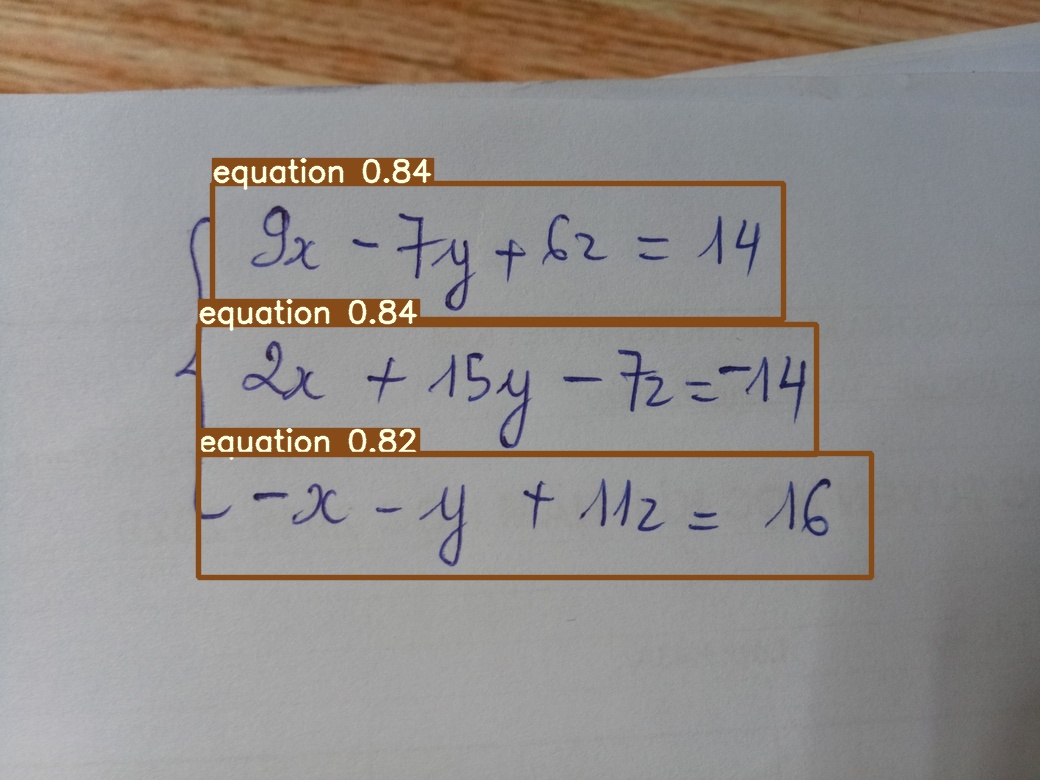 equation 0.84
9x - 7y + 6z = 14
equation 0.84
2x + 15y - 7z = -14
equation 0.82
-x - y + 11z = 16